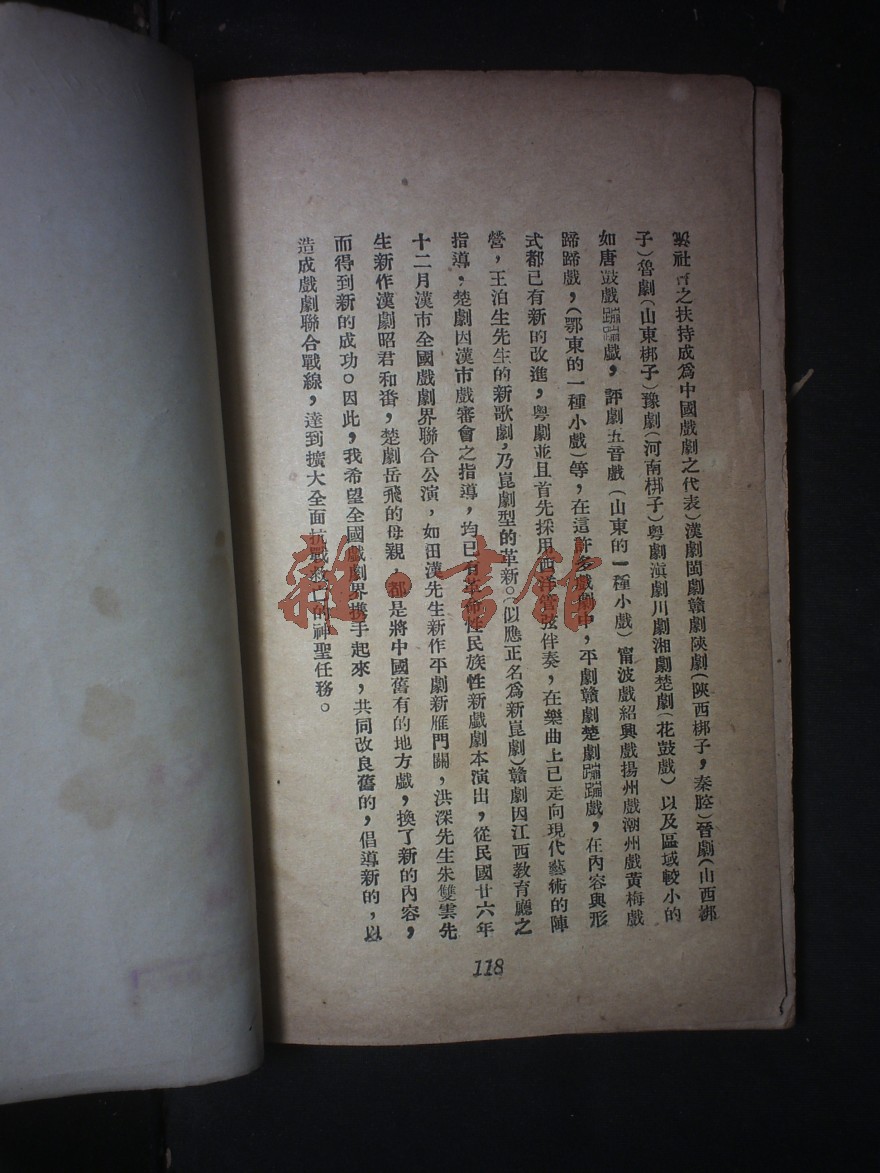 流社會之扶持成爲中國戲劇之代表)漢劇閩劇贛劇陝劇(陝西梆子,秦腔)晉劇(山西梆
子)魯劇(山東梆子)豫劇(河南梆子)粤劇滇劇川劇湘劇楚劇(花鼓戲)以及區域較小的
如唐鼓戲蹦蹦戲,評劇五音戲(山東的一種小戲)甯波戲紹興戲揚州戲潮州戲黃梅戲
蹄蹄戲,(鄂東的一種小戲)等,在這許多戲劇中,平劇贛劇楚劇蹦蹦戲,在內容與形
式都已有新的改進,粤劇並且首先採用西洋管弦伴奏,在樂曲上已走向現代藝術的陣
營,王泊生先生的新歌劇,乃崑劇型的革新。(似應正名爲新崑劇)贛劇因江西教育廳之
指導,楚劇因漢市戲審會之指導,均已有革命性民族性新戲劇本演出,從民國廿六年
十二月漢市全國戲劇界聯合公演,如田漢先生新作平劇新雁門關,洪深先生朱雙雲先
生新作漢劇昭君和番,楚劇岳飛的母親,都是將中國舊有的地方戲,換了新的內容,
而得到新的成功。因此,我希望全國戲劇界携手起來,共同改良舊的,倡導新的,以
造成戲劇聯合戰線,達到擴大全面抗戰救亡的神聖任務。
118
雜·書館